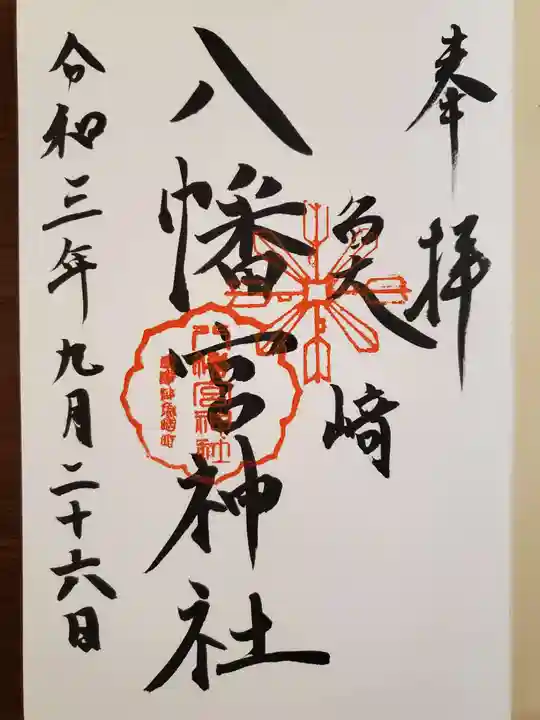 奉拝
魚崎
八幡宮神社
八幡宮神社
令和三年九月二十六日